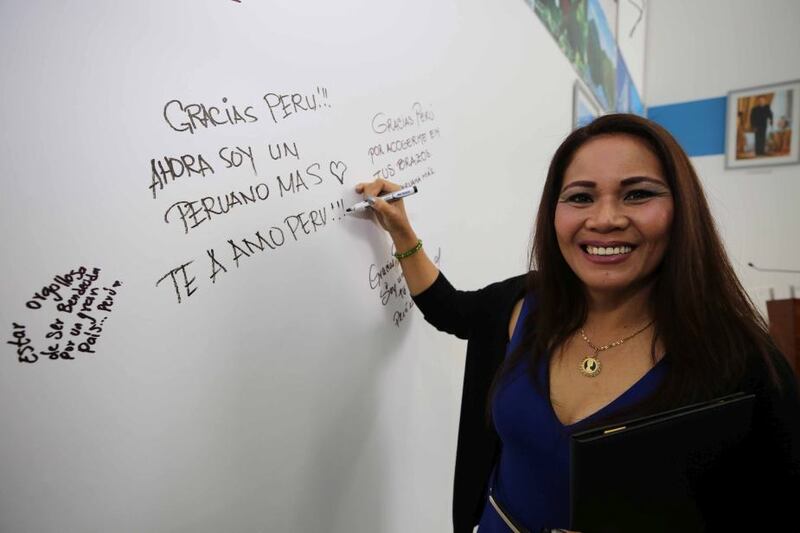 GRACIAS PERU!!!
AHORA SOY UN
PERUANO MAS ♡
TE A AMO PERU!!!
GRACIAS PERÚ
POR ACOGERME EN
TUS BRAZOS
Estar Orgullosa
de Ser Bendecida
Por un gran
País... Perú ♥
Gracias
Soy